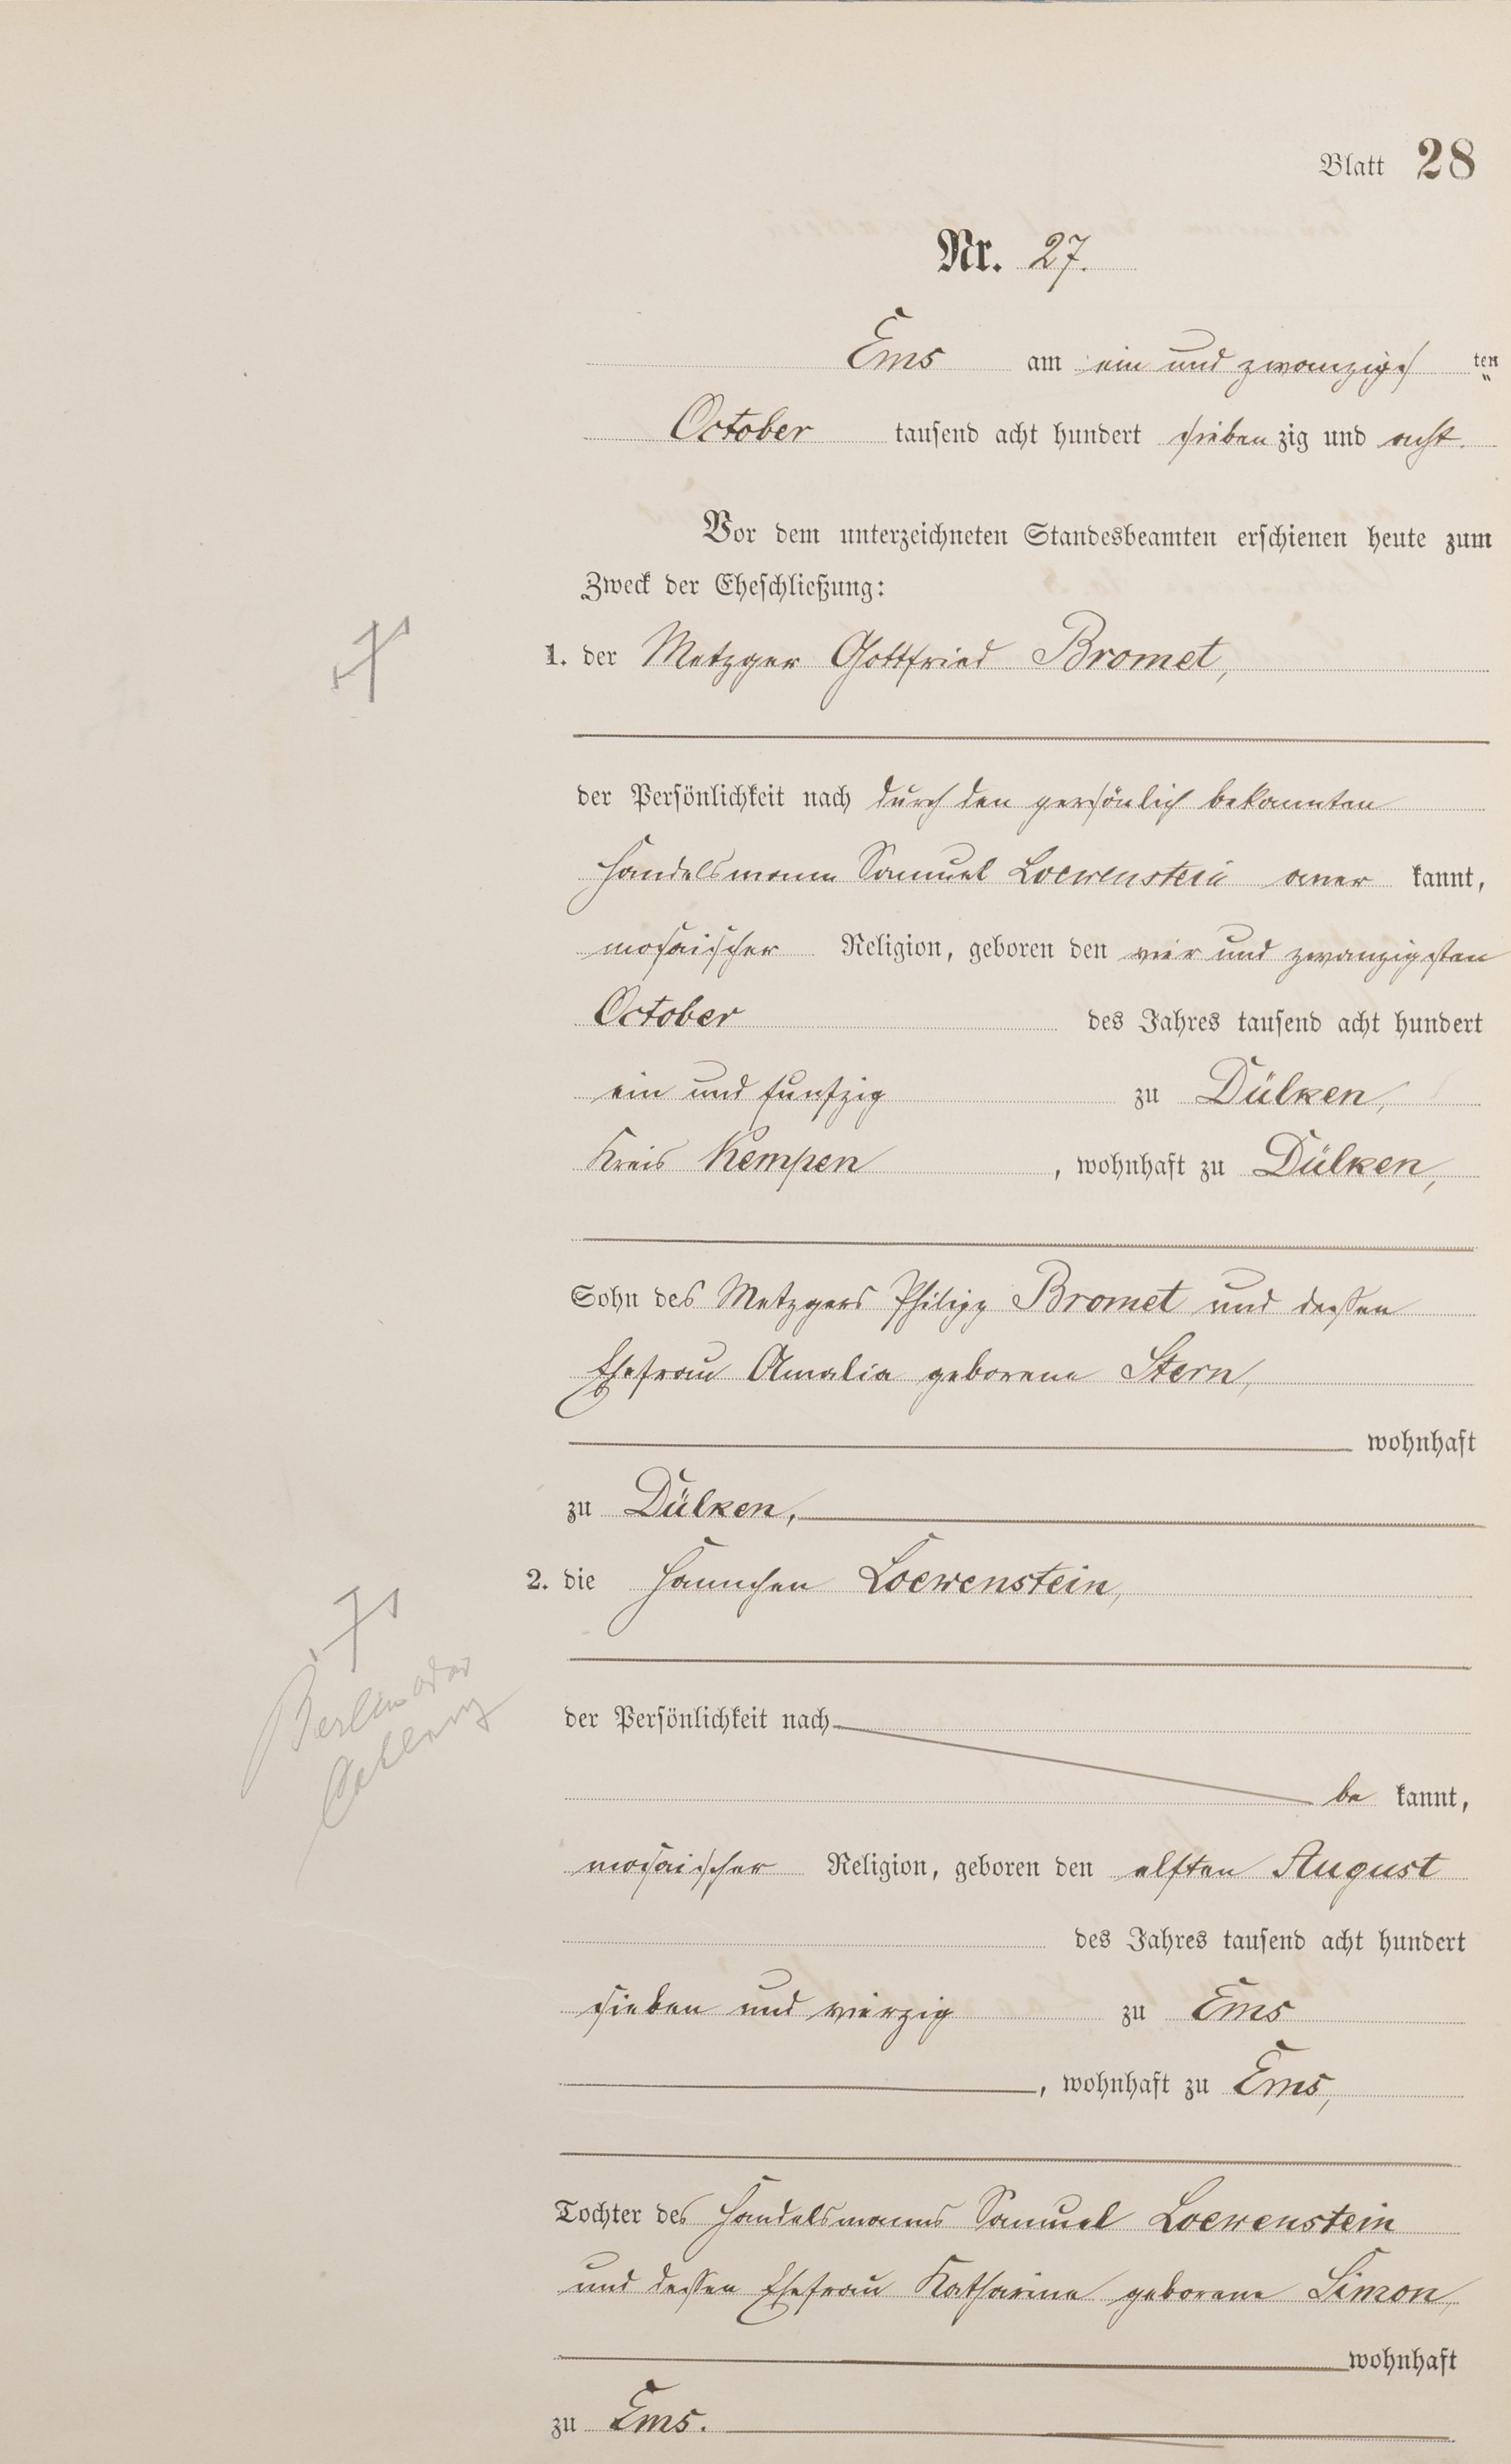 Blatt 28
Nr. 27.
Ems am ein und zwanzigs ten
October tausend acht hundert sieben zig und acht.
Vor dem unterzeichneten Standesbeamten erschienen heute zum
Zweck der Eheschließung:
1. der Metzger Gottfried Bromet,
der Persönlichkeit nach durch den persönlich bekannten
Handelsmann Samuel Loewenstein aner kannt,
mosaischer Religion, geboren den vier und zwanzigsten
October des Jahres tausend acht hundert
ein und funfzig zu Dülken,
Kreis Kempen, wohnhaft zu Dülken,
Sohn des Metzgers Philipp Bromet und dessen
Ehefrau Amalia geborene Stern,
wohnhaft
zu Dülken,
2. die Hannchen Loewenstein,
Berlin oder
der Persönlichkeit nach
be kannt,
mosaischer Religion, geboren den elften August
des Jahres tausend acht hundert
sieben und vierzig zu Ems
, wohnhaft zu Ems,
Tochter des Handelsmanns Samuel Loewenstein
und dessen Ehefrau Katharina geborene Simon,
wohnhaft
zu Ems.